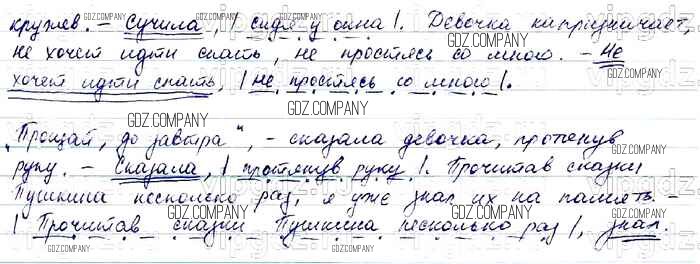 кружев. – Сучила, | сидя у окна |. Девочка капризничает,
не хочет идти спать, не простясь со мною. – Не
хочет идти спать, | не простясь со мною |.
„Прощай, до завтра", – сказала девочка, протянув
руку. – Сказала, | протянув руку |. Прочитав сказки
Пушкина несколько раз, я уже знал их на память. –
| Прочитав сказки Пушкина несколько раз |, знал.
GDZ.COMPANY
GDZ.COMPANY
GDZ.COMPANY
GDZ.COMPANY
GDZ.COMPANY
GDZ.COMPANY
GDZ.COMPANY
GDZ.COMPANY